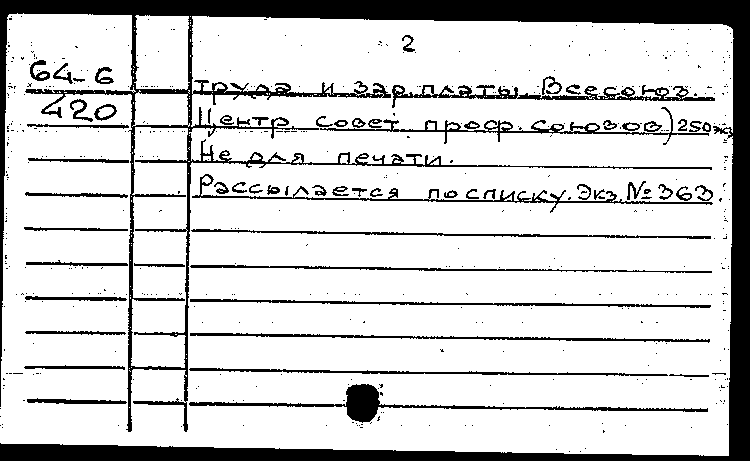 2
64-6
420
труда и зар.платы. Всесоюз.
Центр. совет. проф. союзов) 250 экз
Не для печати.
Рассылается по списку. Экз. № 363.